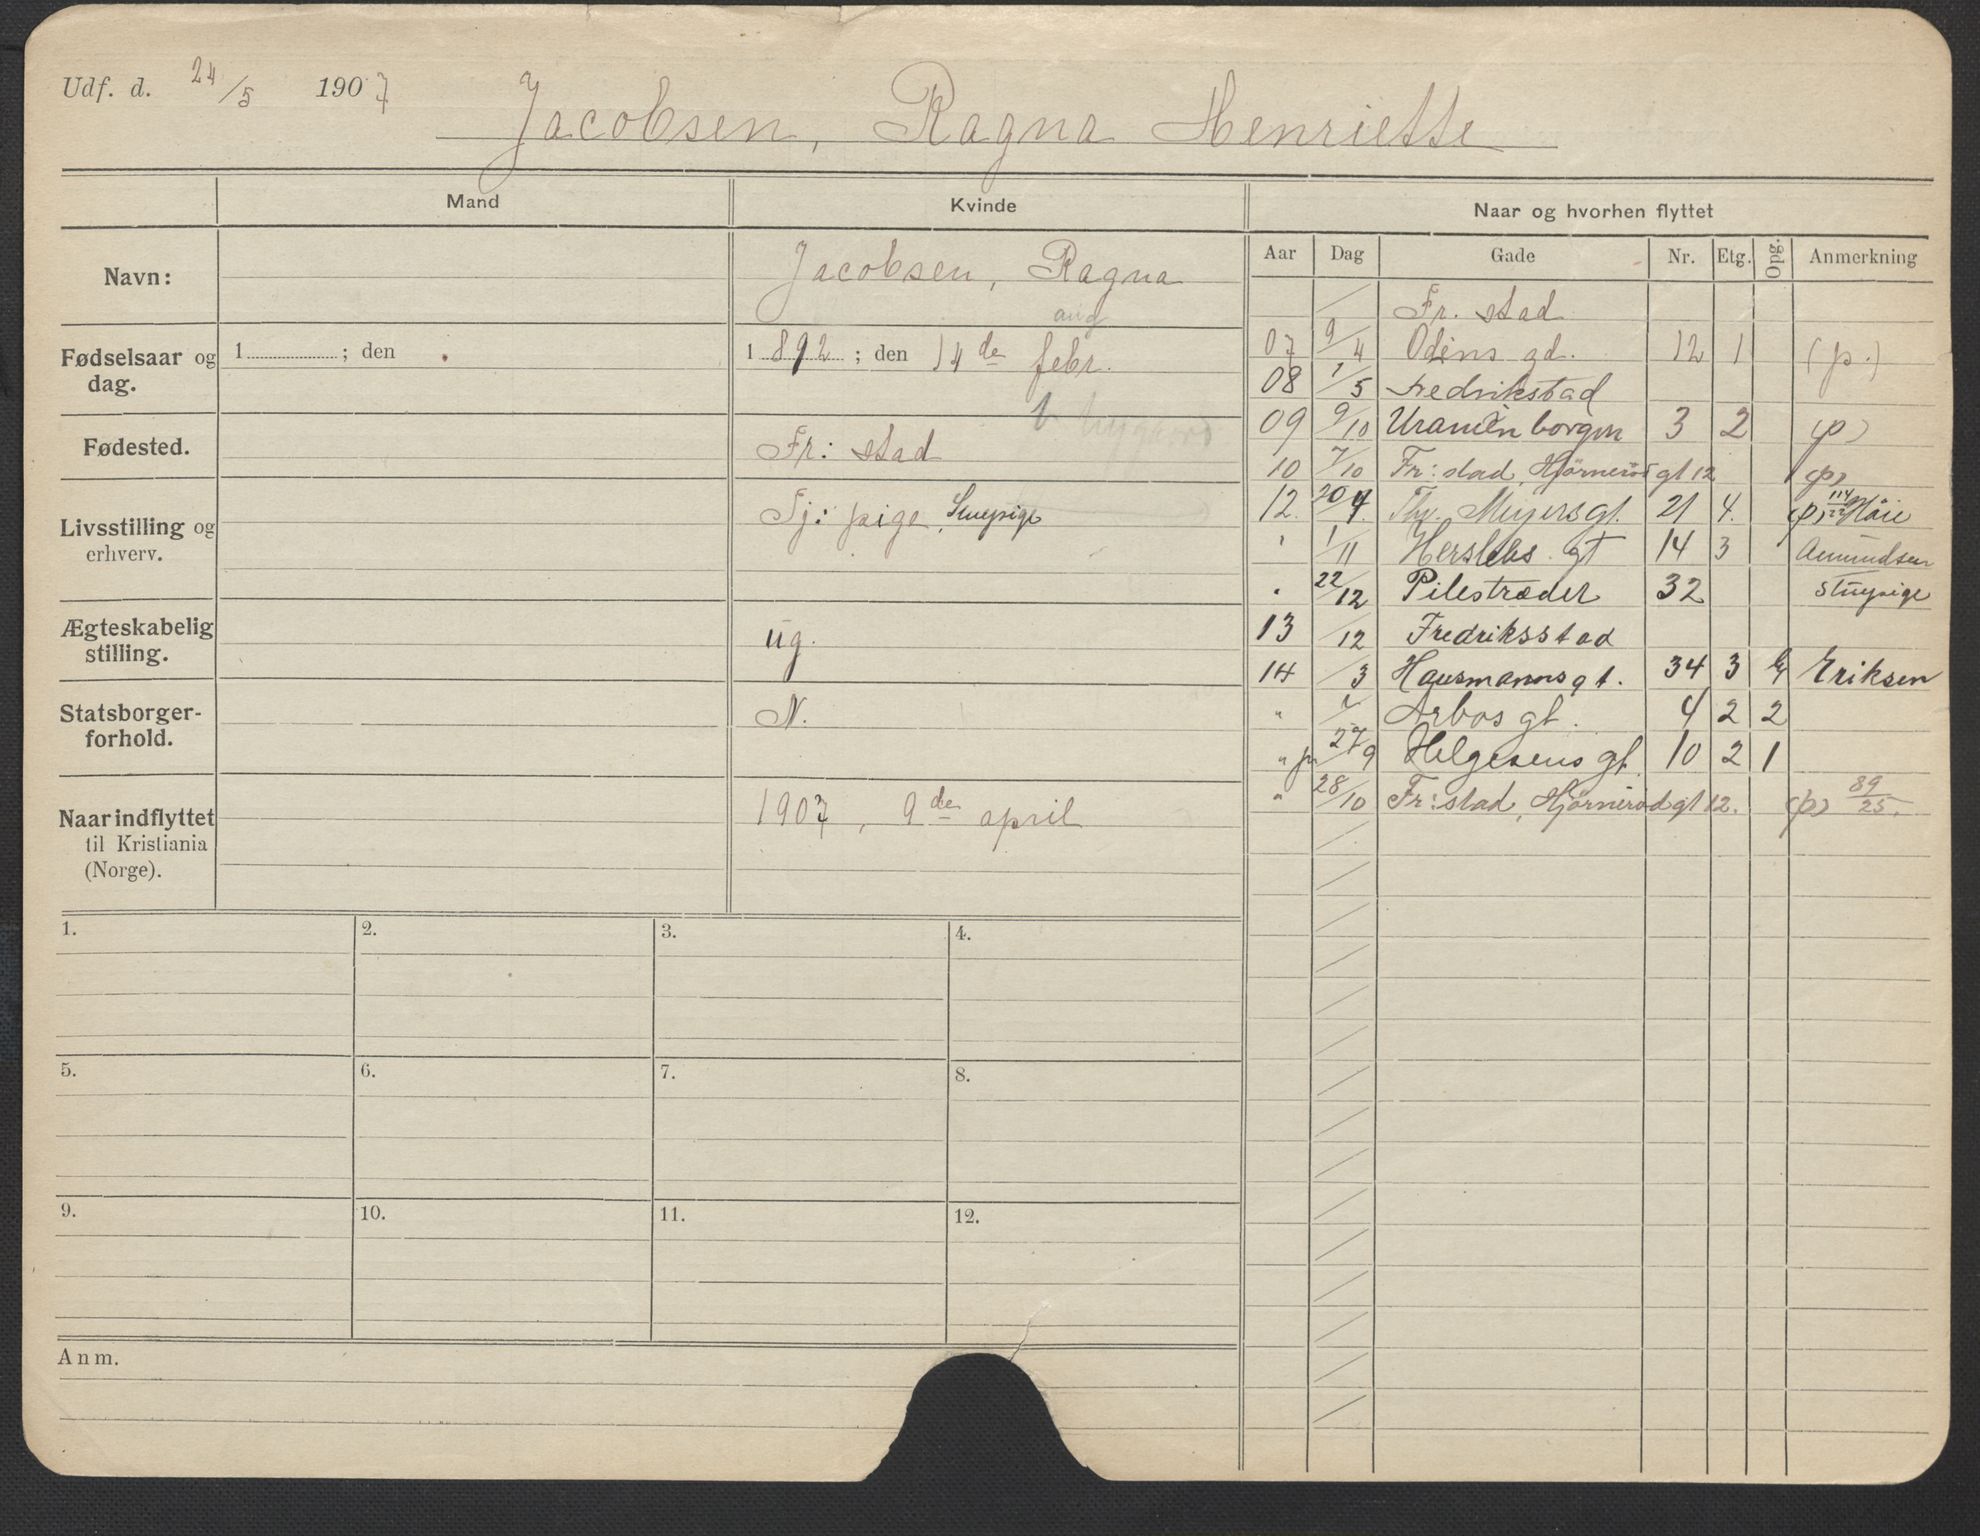 Udf. d. 24/5 1907
Jacobsen, Ragna Henriette
Mand Kvinde Naar og hvorhen flyttet
Aar Dag Gade Nr. Etg. Opg. Anmerkning
Navn: Jacobsen, Ragna
Fødselsaar og dag. 1 ; den 1 892 ; den 14de febr.
aug
Fødested. Fr: stad
Livsstilling og erhverv. Tj: pige, Stuepige
Ægteskabelig stilling. ug.
Statsborgerforhold. N.
Naar indflyttet til Kristiania (Norge). 1907, 9de april
Fr. stad
07 9/4 Odins gd. 12 1 (p.)
08 1/5 Fredrikstad
09 9/10 Uranienborgvn 3 2 (p)
10 7/10 Fr: stad, Hjørnerød gt 12 (p)
12. 20/4. Thv. Meyers gt. 21 4. (p)
" 1/11 Herslebs gt 14 3 Amundsen
" 22/12 Pilestrædet 32 Stuepige
13 /12 Fredriksstad
14 /3 Hausmanns gt. 34 3 Eriksen
" Arbos gt. 4 2 2
" 27/9 Helgesens gt. 10 2 1
" 28/10 Fr: stad, Hjørnerød gt 12. (p) 89/25.
1. 2. 3. 4.
5. 6. 7. 8.
9. 10. 11. 12.
Anm.